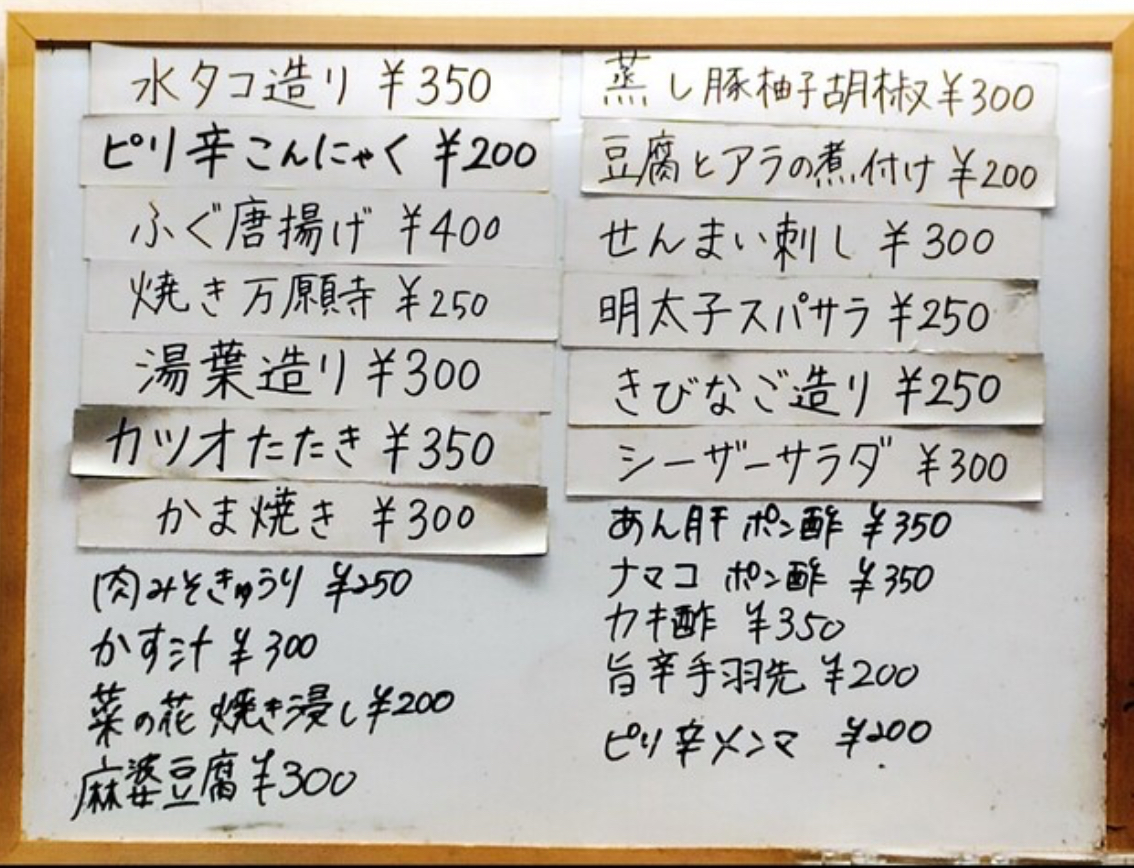 水タコ造り ¥350
ピリ辛こんにゃく ¥200
ふぐ唐揚げ ¥400
焼き万願寺 ¥250
湯葉造り ¥300
カツオたたき ¥350
かま焼き ¥300
肉みそきゅうり ¥250
かす汁 ¥300
菜の花焼き浸し ¥200
麻婆豆腐 ¥300
蒸し豚柚子胡椒 ¥300
豆腐とアラの煮付け ¥200
せんまい刺し ¥300
明太子スパサラ ¥250
きびなご造り ¥250
シーザーサラダ ¥300
あん肝ポン酢 ¥350
ナマコポン酢 ¥350
カキ酢 ¥350
旨辛手羽先 ¥200
ピリ辛メンマ ¥200